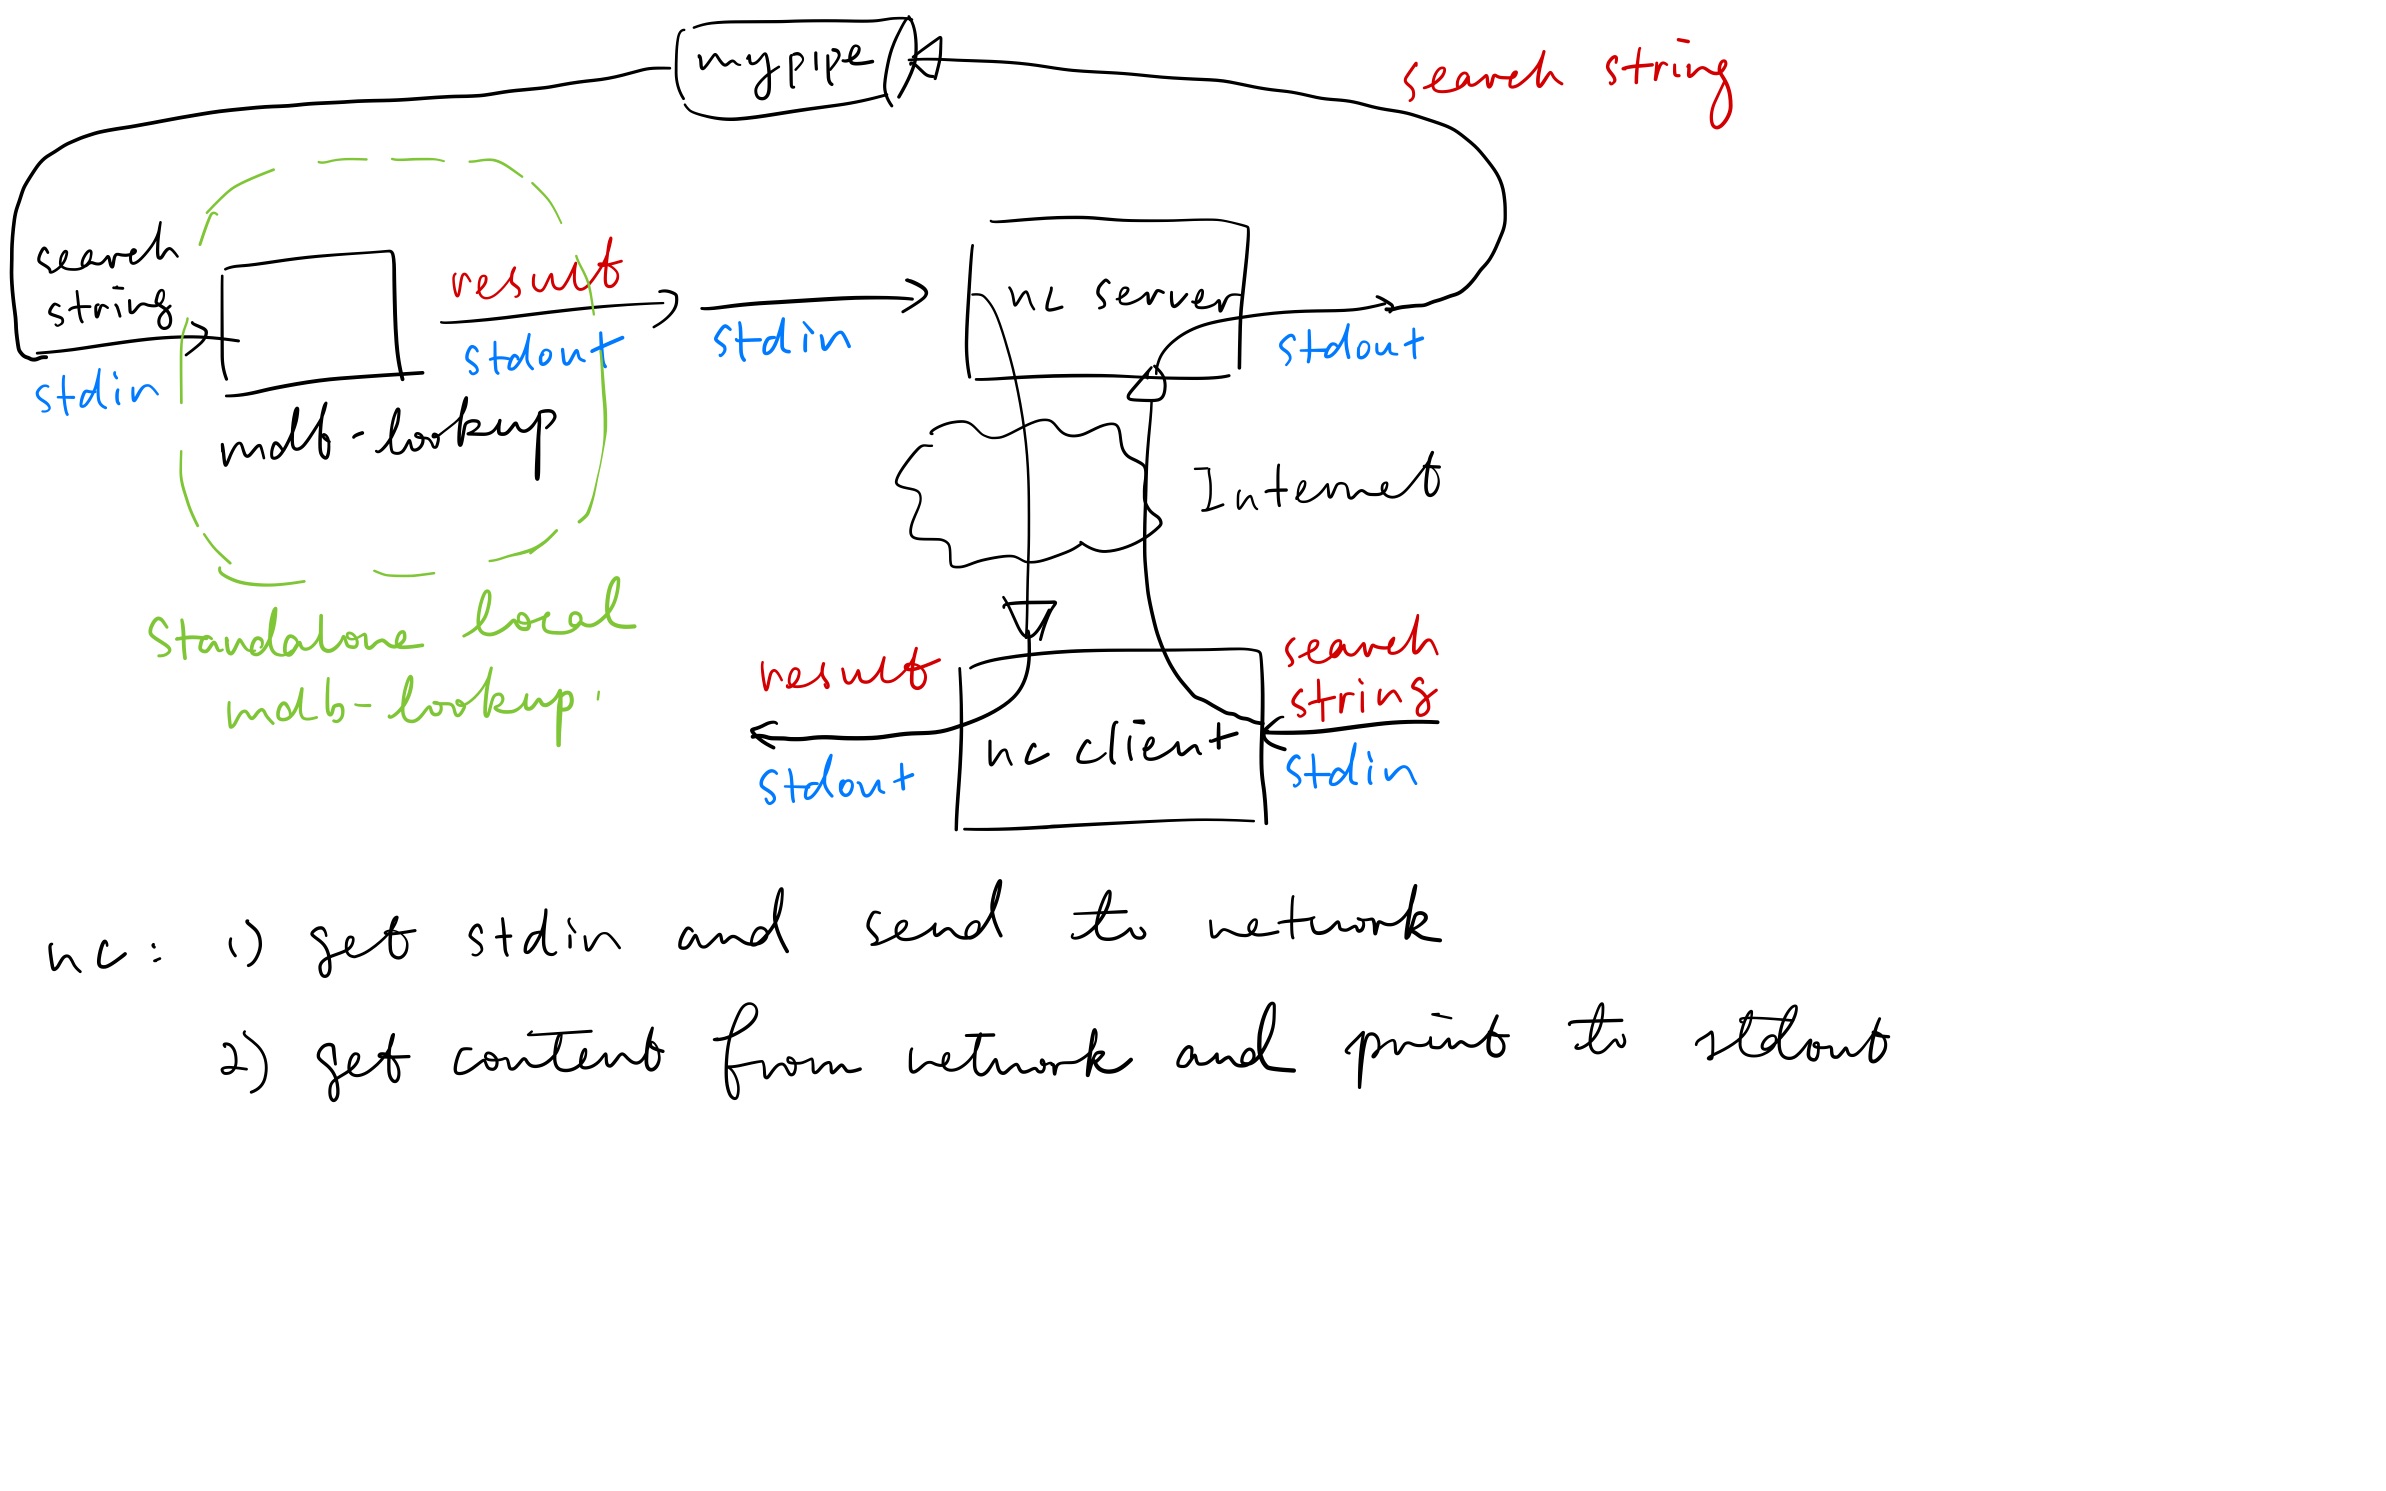 mypipe
search string
search
string
stdin
result
stdout
stdin
nc server
stdout
mdb-lookup
Internet
standalone local
mdb-lookup
result
stdout
nc client
search
string
stdin
nc: 1) get stdin and send to network
2) get content from network and print to stdout